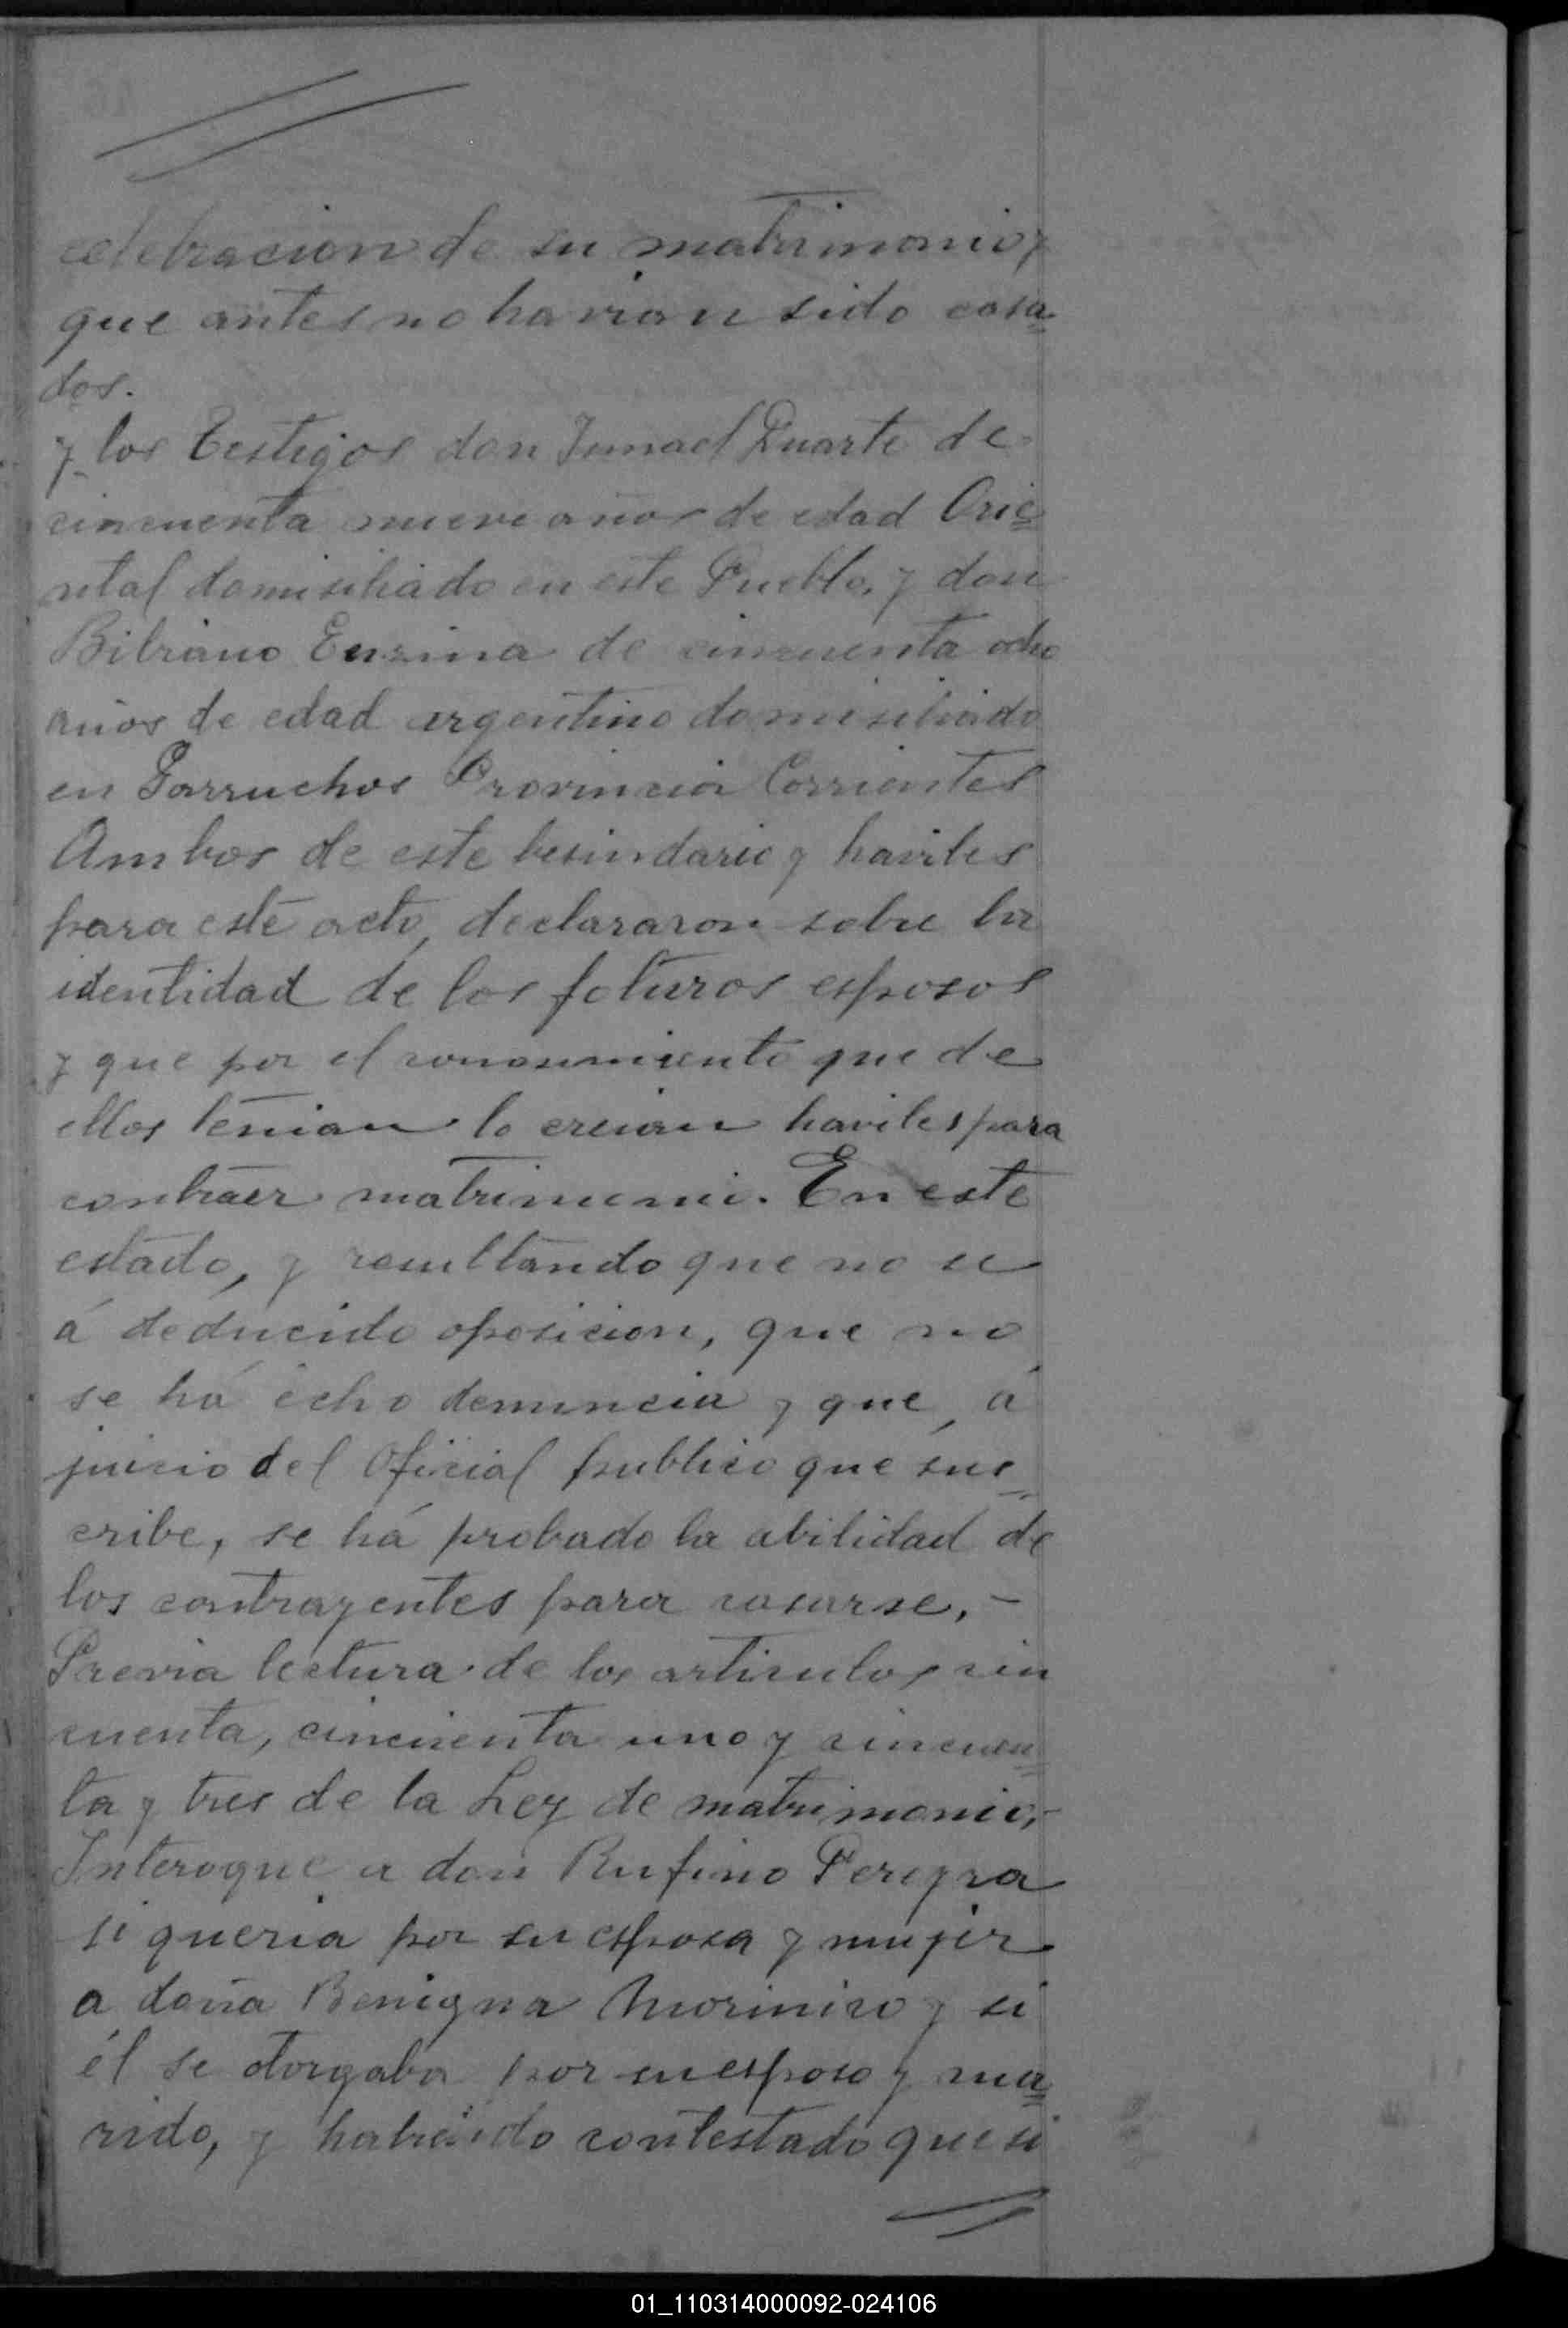 celebracion de su matrimonio, y
que antes no havian sido casa=
dos.
y los Testigos don Ismael Duarte de
cincuenta nueve años de edad Orie=
ntal domisiliado en este Pueblo, y don
Bibiano Ensina de cincuenta ocho
años de edad argentino domisiliado
en Garruchos Provincia Corrientes
Ambos de este besindario y haviles
para este acto, declararon sobre la
identidad de los foturos esposos
y que por el conosimiento que de
ellos tenian lo creian haviles para
contraer matrimonio. En este
estado, y resultando que no se
á deducido oposicion, que no
se há echo denuncia y que, á
juicio del Oficial publico que sus=
cribe, se há probado la abilidad de
los contrayentes para casarse. -
Previa lectura de los articulos cin
cuenta, cincuenta uno y cincuen=
ta y tres de la Ley de matrimonio, -
Interogue a don Rufino Pereyra
si queria por su esposa y mujer
a doña Benigna Moriniso y si
él se otorgaba por su esposo y ma=
rido, y habiendo contestado que si
01_110314000092-024106